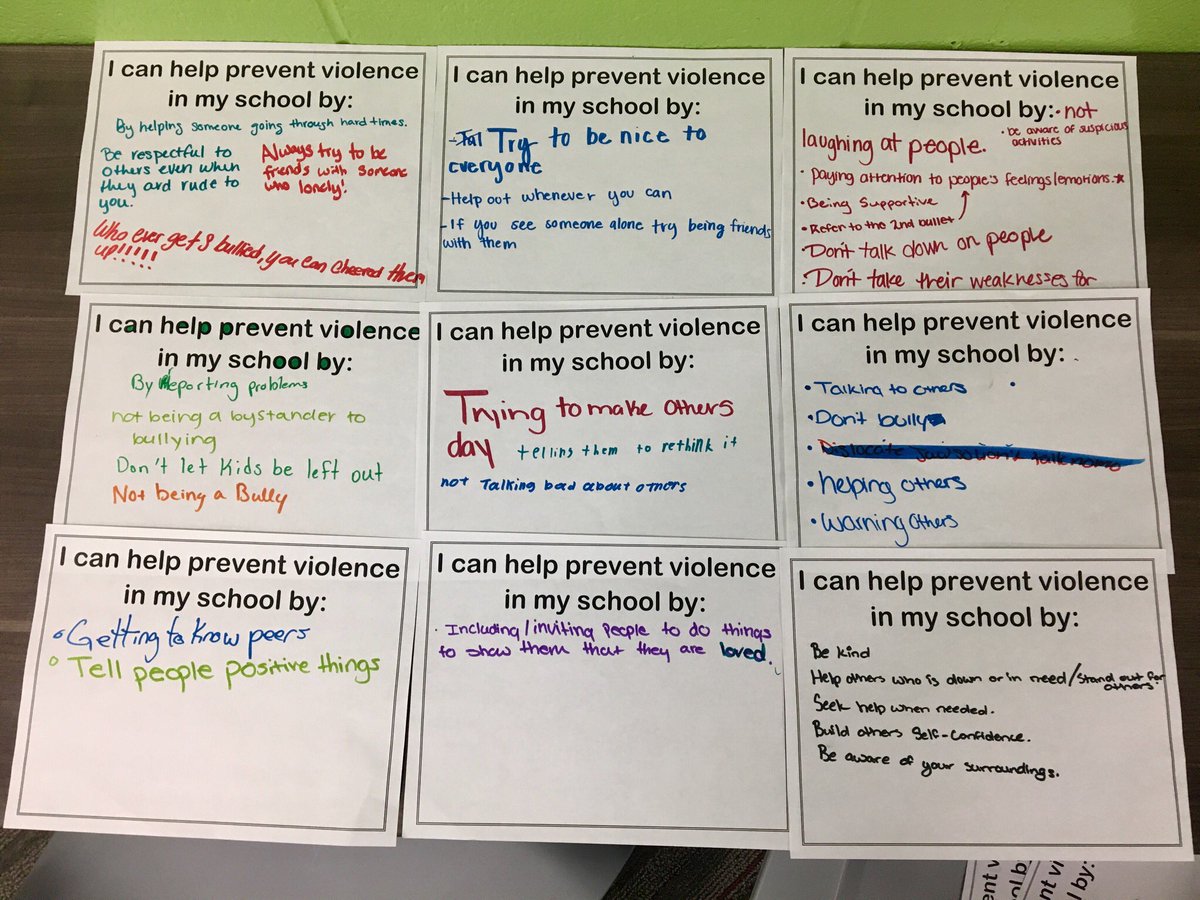 I can help prevent violence
in my school by:
By helping someone going through hard times.
Be respectful to
others even when
they ard rude to
you.
Always try to be
friends with someone
who lonely!
Who ever gets bullied, you can cheered them
up!!!!!
I can help prevent violence
in my school by:
- Tal Try to be nice to
everyone
- Help out whenever you can
- If you see someone alone try being friends
with them
I can help prevent violence
in my school by: • not
laughing at people.
• be aware of suspicious
activities
• paying attention to people's feelings/emotions.*
• Being Supportive
• Refer to the 2nd bullet
• Don't talk down on people
• Don't take their weaknesses for
I can help prevent violence
in my school by:
By Reporting problems
not being a bystander to
bullying
Don't let kids be left out
Not being a Bully
I can help prevent violence
in my school by:
Trying to make others
day
tellins them to rethink it
not Talking bad about others
I can help prevent violence
in my school by:
• Talking to others
• Don't bully
• Dislocate jaws
• helping others
• warning others
I can help prevent violence
in my school by:
Getting to know peers
Tell people positive things
I can help prevent violence
in my school by:
• Including/inviting people to do things
to show them that they are loved.
I can help prevent violence
in my school by:
Be kind
Help others who is down or in need/stand out for
others.
Seek help when needed.
Build others self-confidence.
Be aware of your surroundings.
ent vi
ol by
ent v
l by: